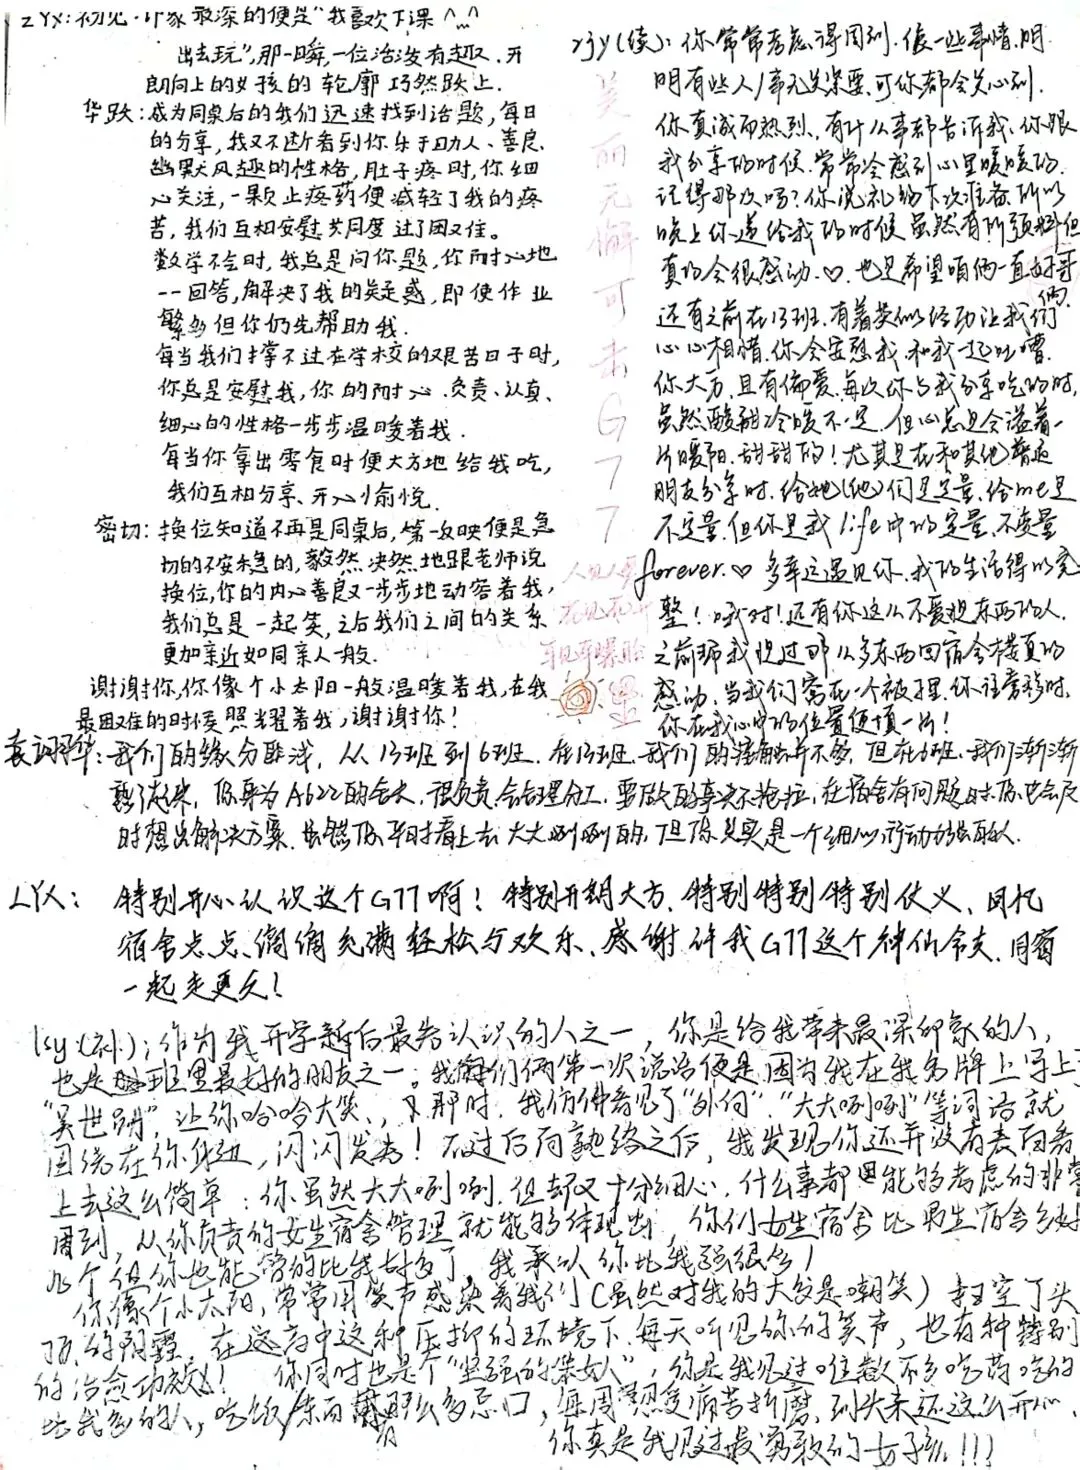 ZYX: 初见·印象最深的便是“我喜欢下课^_^
出去玩”,那一瞬,一位活泼有趣、开
朗向上的女孩的轮廓巧然跃上.
华跃:成为同桌后的我们迅速找到话题,每日
的分享,我又不断看到你乐于助人、善良、
幽默风趣的性格,肚子疼时,你细
心关注,一颗止疼药便减轻了我的疼
苦,我们互相安慰共同度过了困难。
数学不会时,我总是问你题,你耐心地
一一回答,解决了我的疑惑,即使作业
繁多但你仍先帮助我.
每当我们撑不过在学校的艰苦日子时,
你总是安慰我,你的耐心、负责、认真、
细心的性格一步步温暖着我.
每当你拿出零食时便大方地给我吃,
我们互相分享、开心愉悦.
密切:换位知道不再是同桌后,第一反映便是急
切的不安焦急的,毅然决然地跟老师说
换位,你的内心善良又一步步地动容着我,
我们总是一起笑,之后我们之间的关系
更加亲近如同亲人一般.
谢谢你,你像个小太阳一般温暖着我,在我
最困难的时候照耀着我,谢谢你!
(续):你常常考虑得周到.做一些事情.明
明有些人/事无关紧要.可你都会关心到.
你真诚而热烈、有什么事都告诉我.你跟
我分享的时候.常常会感到心里暖暖的.
记得那次吗?你说礼物下次准备所以
晚上你递给我的时候虽然有所预料但
真的会很感动.♡.也是希望咱俩一直好哥
俩
还有之前在13班.有着类似经历让我们
心心相惜.你会安慰我.和我一起吐嘈.
你大方、且有偏爱.每次你与我分享吃的时,
虽然酸甜冷暖不定.但心总是会溢着一
片暖阳.甜甜的!尤其是在和其他普通
朋友分享时.给她(他)们是定量.给me是
不定量.但你是我life中的定量、不变量
forever.♡ 多幸运遇见你.我的生活得以完
整!哦对!还有你这么不爱提东西的人.
之前帮我提过那么多东西回宿舍楼真的
感动.当我们窝在一个被里.你往旁移时.
你在我心中的位置便填一片!
美丽无懈可击G77
人见人爱
:我们的缘分匪浅,从13班到6班.在13班.我们的接触并不多,但在6班.我们渐渐
熟络起来,你身为A622的舍长.很负责.会合理分工.要做的事决不拖拉,在宿舍有问题时你也会及
时想出解决方案.虽然你平时看上去大大咧咧的,但你其实是一个细心行动力强的人.
LYX: 特别开心认识这个G77啊!特别开朗大方、特别特别特别仗义、回忆
宿舍点点滴滴充满轻松与欢乐、感谢许我G77这个神仙舍友.同窗
一起走更久!
lsy(补):作为我开学新后最先认识的人之一,你是给我带来最深印象的人,
也是班里最好的朋友之一。我们俩第一次说话便是因为我在我名牌上写上
“吴世勋”,让你哈哈大笑、那时.我仿佛看见了“外向”.“大大咧咧”等词语就
围绕在你身边,闪闪发光!不过后面熟络之后,我发现你还并没有表面看
上去这么简单:你虽然大大咧咧.但却又十分细心.什么事都能够考虑的非常
周到,从你负责的女生宿舍管理就能够体现出,你们女生宿舍比男生宿舍多好
几个但你也能管的比我好多了,我承认你比我强很多!
你像个小太阳,常常用笑声感染着我们(虽然对我的大多是嘲笑)扫空了头
顶的阴霾.在这高中这种压抑的环境下.每天听见你的笑声,也有种特别
的治愈功效!你同时也是个“坚强的柔女人”,你是我见过唯数不多吃药吃的
比我多的人,吃饭/东西有那么多忌口,每周忍受痛苦折磨.到头来还这么开心.
你真是我见过最勇敢的女孩!!!